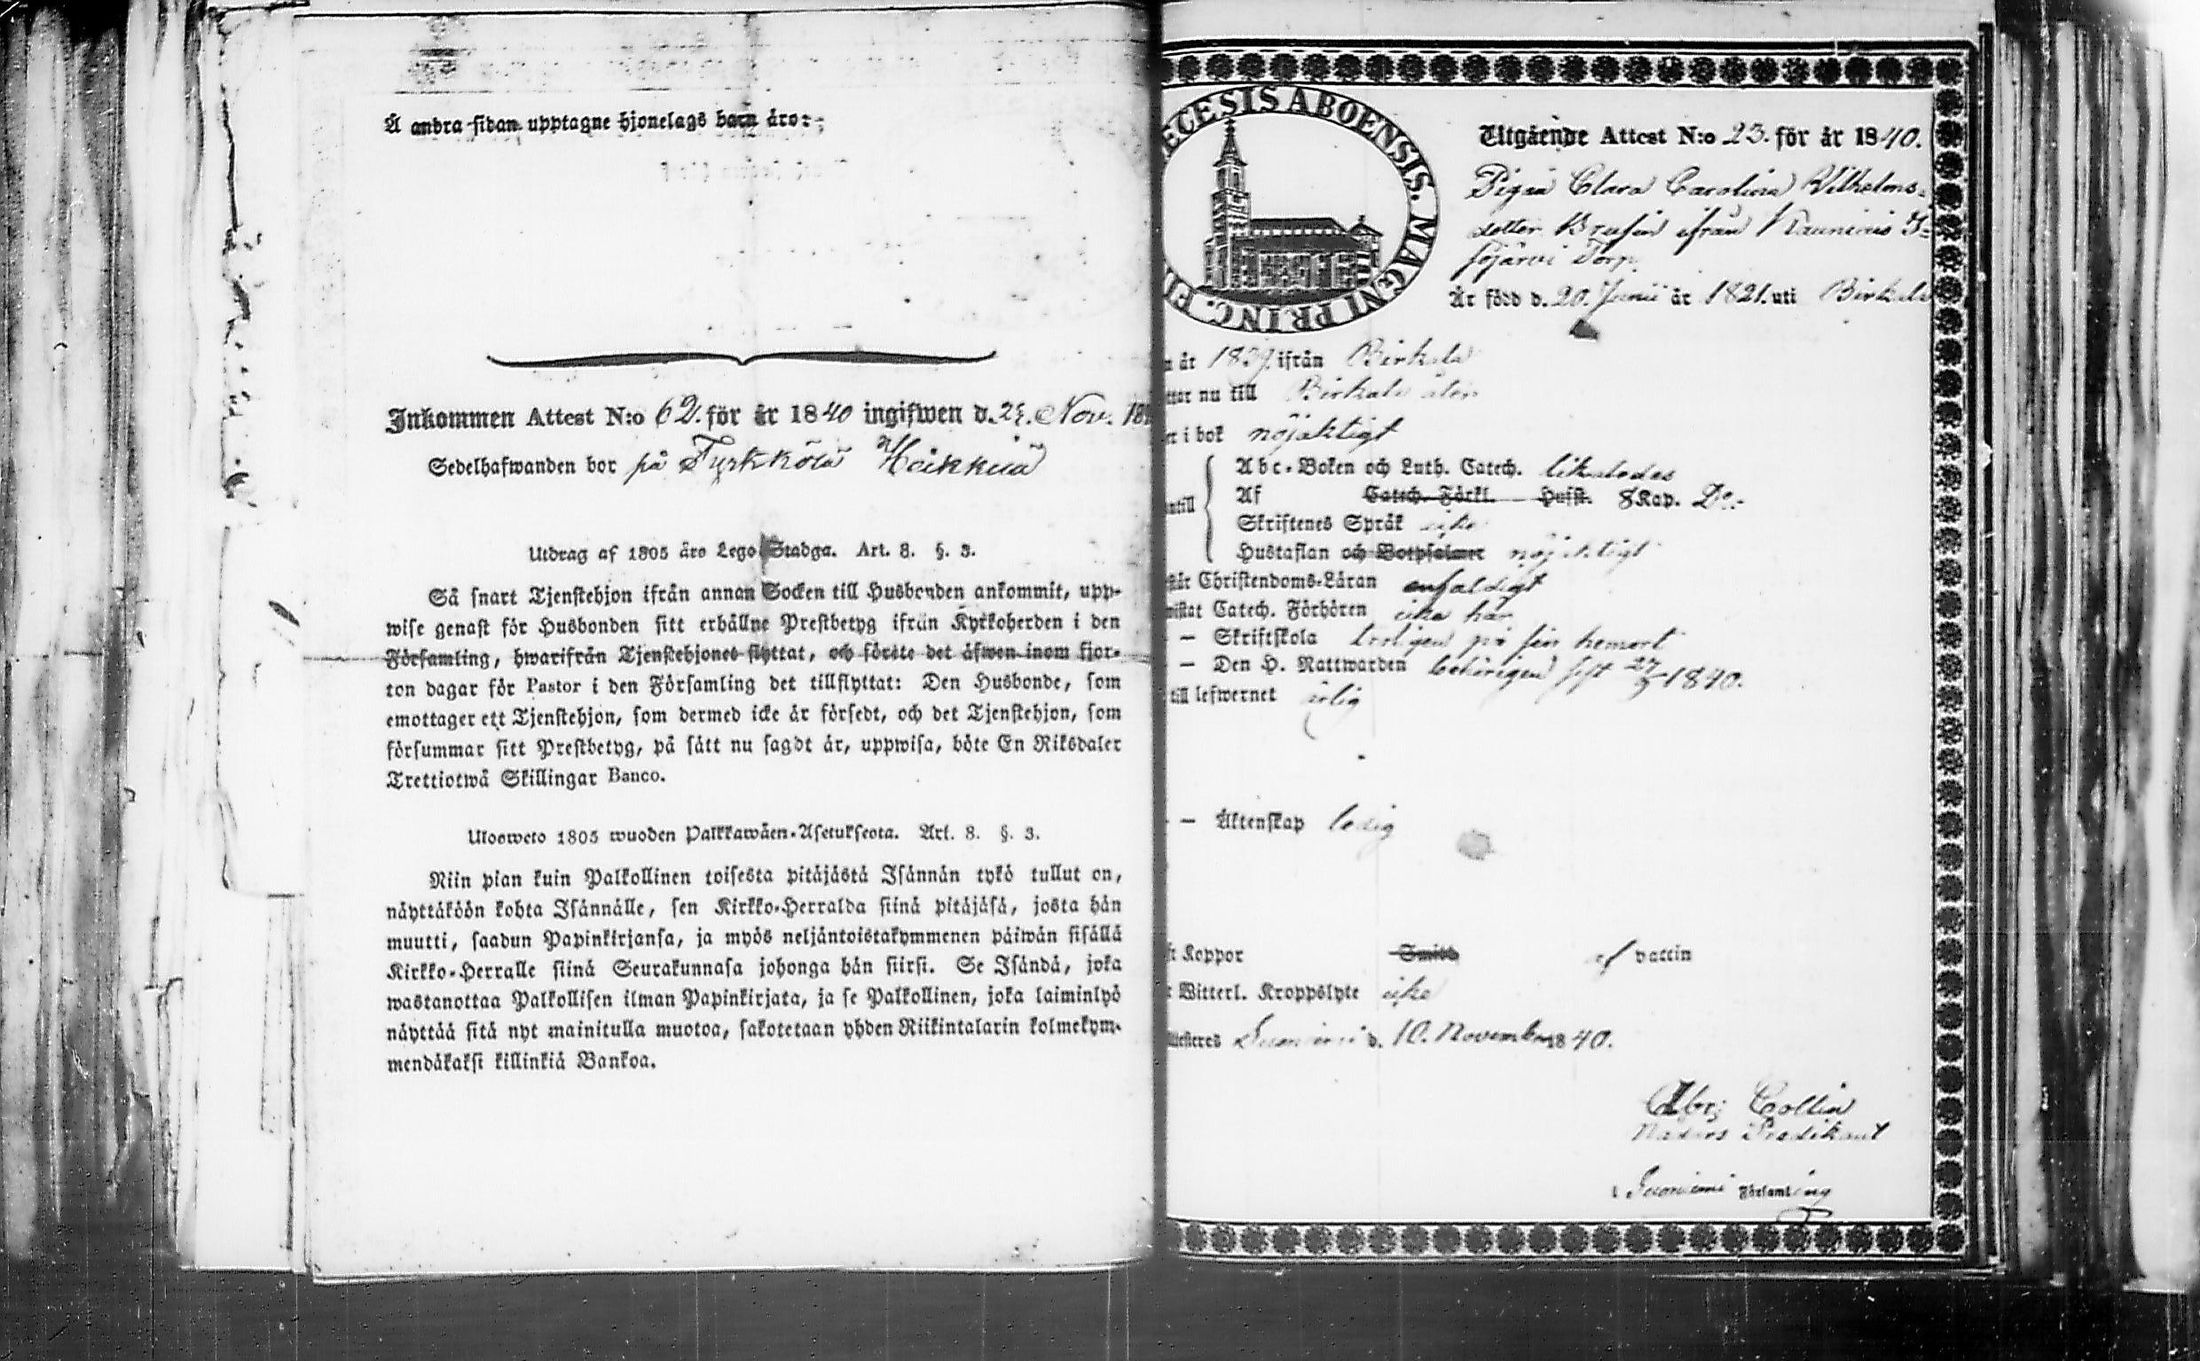 Å andra sidan upptagne hjonelags barn äro:
Inkommen Attest N:o 62. för år 1840 ingifwen d. Nov. 18
Sedelhafwanden bor på Tyrkkölä Heikkilä
Utdrag af 1805 års Lego-Stadga. Art. 8. §. 3.
Så snart Tjenstehjon ifrån annan Socken till Husbonden ankommit, upp-
wise genast för Husbonden sitt erhållne Prestbetyg ifrån Kyrkoherden i den
Församling, hwarifrån Tjenstehjonet flyttat, och förete det äfwen inom fjor-
ton dagar för Pastor i den Församling det tillflyttat: Den Husbonde, som
emottager ett Tjenstehjon, som dermed icke är försedt, och det Tjenstehjon, som
försummar sitt Prestbetyg, på sätt nu sagdt är, uppwisa, böte En Riksdaler
Trettiotwå Skillingar Banco.
Ulosweto 1805 wuoden Palkkawäen-Asetuksesta. Art. 8. §. 3.
Niin pian kuin Palkollinen toisesta pitäjästä Isännän tykö tullut on,
näyttäköön kohta Isännälle, sen Kirkko-Herralda siinä pitäjäsä, josta hän
muutti, saadun Papinkirjansa, ja myös neljäntoistakymmenen päiwän sisällä
Kirkko-Herralle siinä Seurakunnasa johonga hän siirsi. Se Isändä, joka
wastanottaa Palkollisen ilman Papinkirjata, ja se Palkollinen, joka laiminlyö
näyttää sitä nyt mainitulla muotoa, sakotetaan yhden Riikintalarin kolmekym-
mendäkaksi killinkiä Bankoa.
ECESIS ABOENSIS. MAGNI PRINC. FI
Utgående Attest N:o 23. för år 1840.
Pigan Clara Carolina Wilhelms-
dotter Brusin ifrån Kauniais I-
sojärvi Torp
Är född d. 20. Junii år 1821. uti Birkala
år 1839. ifrån Birkala
nu till Birkala åter
i bok nöjaktigt
Abc-Boken och Luth. Catech. likaledes
Af Catech. Förkl. Hufst. 8 Kap. Do.
Skriftenes Språk icke
Hustaflan och Botpsalmer nöjaktigt
Christendoms-Läran enfaldigt
Catech. Förhören icke har
— Skriftskola troligen på sin hemort
— Den H. Nattwarden behörigen sist 27/9 1840.
till lefwernet ärlig
— — Äktenskap ledig
Koppor Smitt af vaccin
Witterl. Kroppslyte icke
Suoniemi d. 10. November 1840.
Abr: Collin
Nådårs Predikant
i Suoniemi Församling